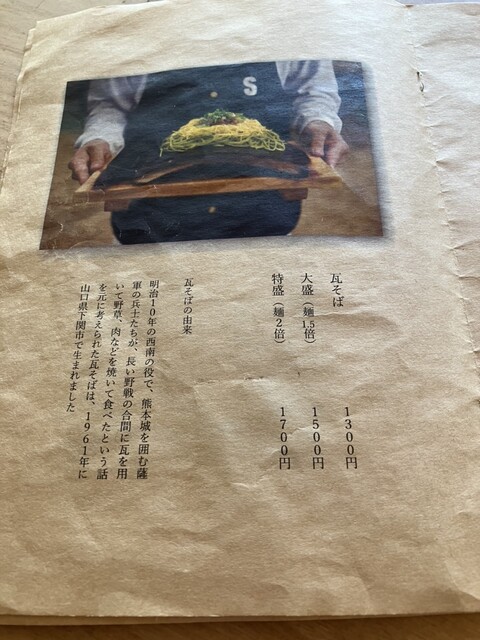 S
瓦そば 1300円
大盛（麺1.5倍） 1500円
特盛（麺2倍） 1700円
瓦そばの由来
明治10年の西南の役で、熊本城を囲む薩
軍の兵士たちが、長い野戦の合間に瓦を用
いて野草、肉などを焼いて食べたという話
を元に考えられた瓦そばは、1961年に
山口県下関市で生まれました